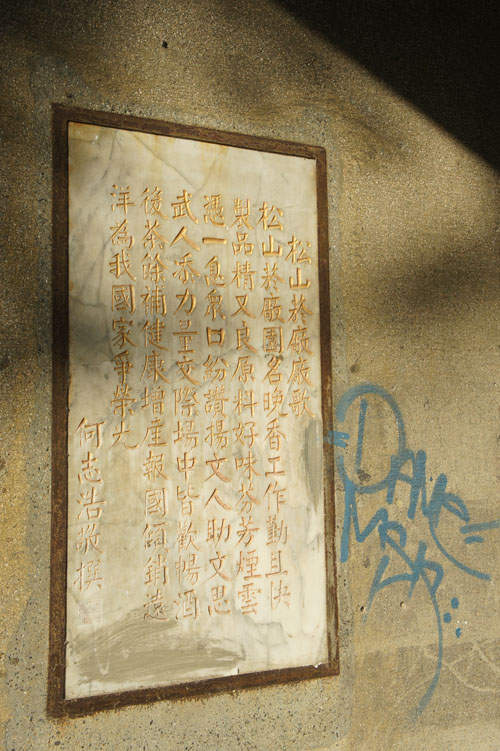 松山菸廠廠歌
松山菸廠園名晚香工作勤且快
製品精又良原料好味芬芳煙雲
憑一息眾口紛讚揚文人助文思
武人添力量交際場中皆歡暢酒
後茶餘補健康增産報國傾銷遠
洋為我國家爭榮光
何志浩敬撰